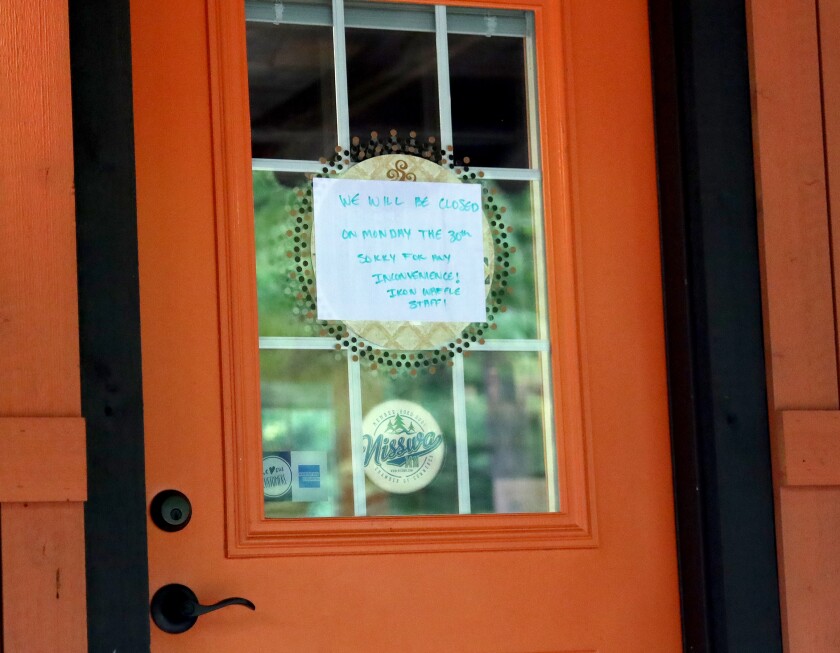 WE WILL BE CLOSED
ON MONDAY THE 30th
SORRY FOR ANY
INCONVENIENCE!
IRON WAFFLE
STAFF!
Nisswa
CHAMBER OF COMMERCE